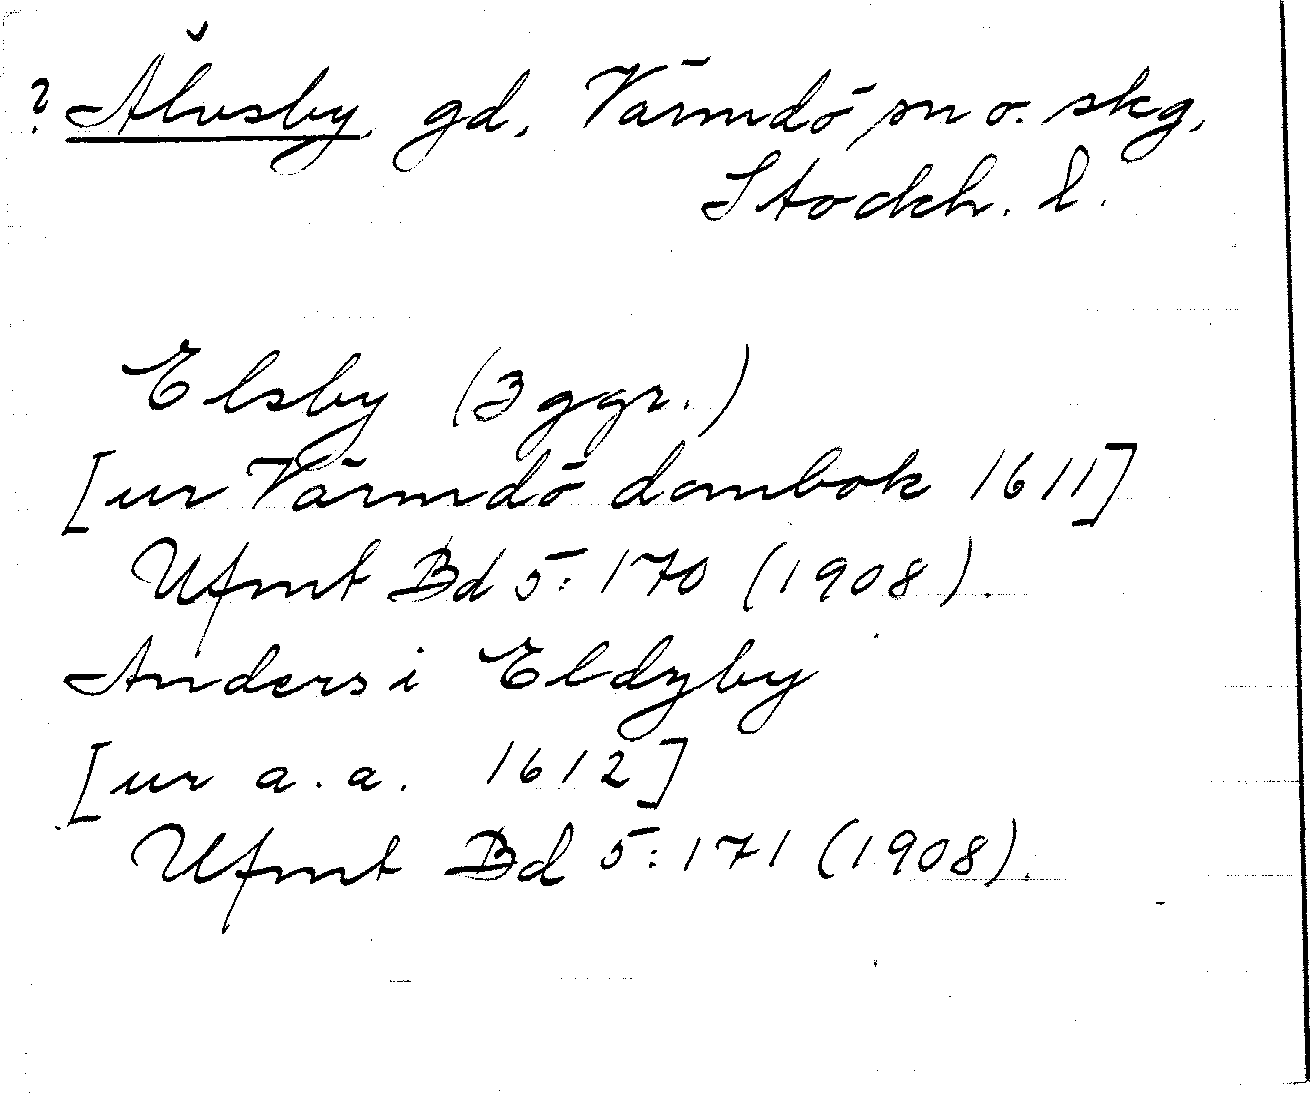 ? Älvsby gd, Värmdö sn o. skg,
Stockh. l.
Elsby (3 ggr.)
[ur Värmdö dombok 1611]
Ufmt Bd 5: 170 (1908).
Anders i Eldzby
[ur a. a. 1612]
Ufmt Bd 5: 171 (1908).